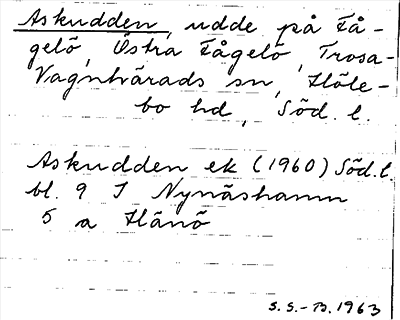 Askudden, udde på Få-
gelö, Östra Fågelö, Trosa-
Vagnhärads sn, Höle-
bo hd, Söd. l.
Askudden ek (1960) Söd. l.
bl. 9 I Nynäshamn
5 a Hånö
S.S.-B. 1963